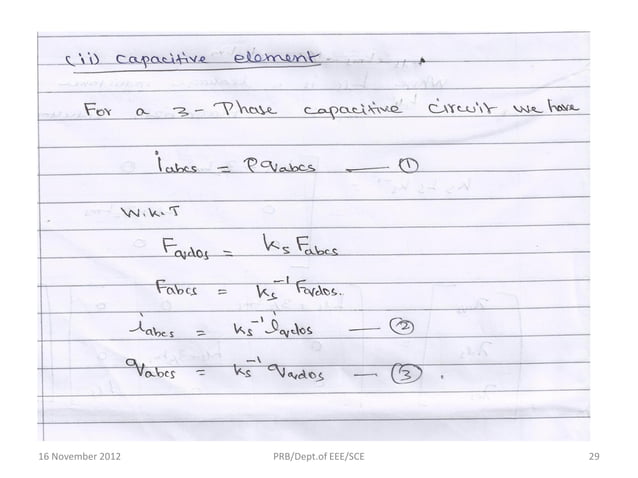 (ii) capacitive element
For a 3-Phase capacitive circuit, we have
iabcs = Pqabcs — ①
W.K.T
Fqdos = ks Fabcs
Fabcs = ks⁻¹ Fqdos.
iabcs = ks⁻¹ iqdos — ②
qabcs = ks⁻¹ qqdos — ③.
16 November 2012 PRB/Dept.of EEE/SCE 29